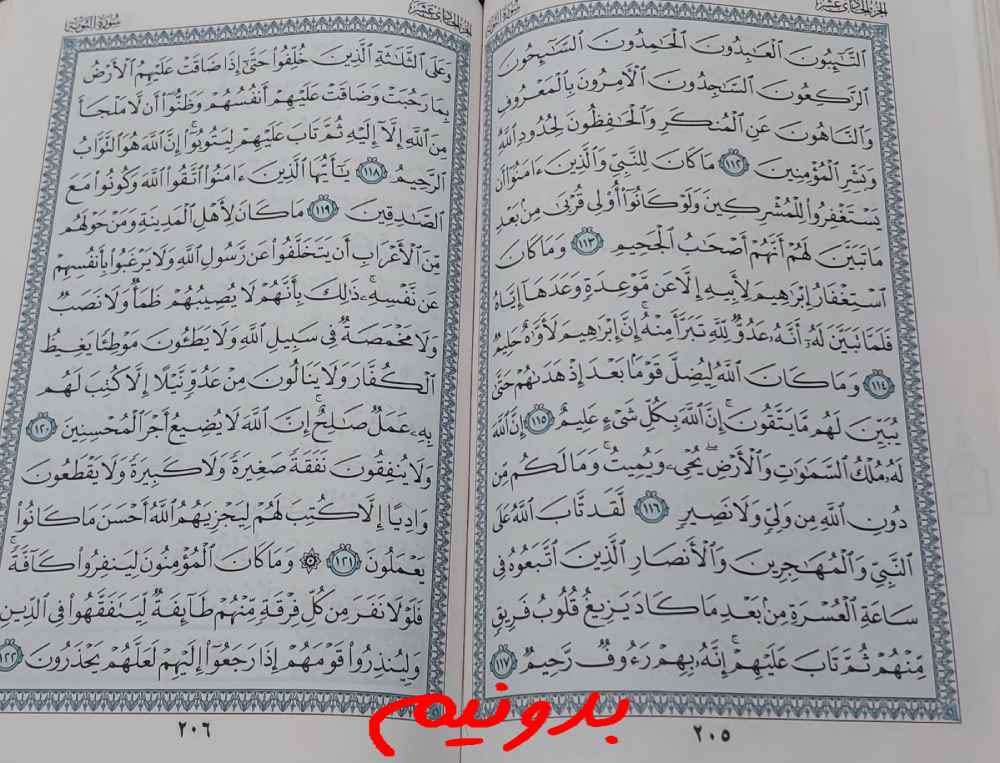 الجزء الحادي عشر
سورة التوبة
ٱلتَّٰٓئِبُونَ ٱلْعَٰبِدُونَ ٱلْحَٰمِدُونَ ٱلسَّٰٓئِحُونَ
ٱلرَّٰكِعُونَ ٱلسَّٰجِدُونَ ٱلْءَامِرُونَ بِٱلْمَعْرُوفِ
وَٱلنَّاهُونَ عَنِ ٱلْمُنكَرِ وَٱلْحَٰفِظُونَ لِحُدُودِ ٱللَّهِ
وَبَشِّرِ ٱلْمُؤْمِنِينَ ١١٢ مَا كَانَ لِلنَّبِىِّ وَٱلَّذِينَ ءَامَنُوٓا۟ أَن
يَسْتَغْفِرُوا۟ لِلْمُشْرِكِينَ وَلَوْ كَانُوٓا۟ أُو۟لِى قُرْبَىٰ مِنۢ بَعْدِ
مَا تَبَيَّنَ لَهُمْ أَنَّهُمْ أَصْحَٰبُ ٱلْجَحِيمِ ١١٣ وَمَا كَانَ
ٱسْتِغْفَارُ إِبْرَٰهِيمَ لِأَبِيهِ إِلَّا عَن مَّوْعِدَةٍ وَعَدَهَآ إِيَّاهُ
فَلَمَّا تَبَيَّنَ لَهُۥٓ أَنَّهُۥ عَدُوٌّ لِّلَّهِ تَبَرَّأَ مِنْهُ ۚ إِنَّ إِبْرَٰهِيمَ لَأَوَّٰهٌ حَلِيمٌ
١١٤ وَمَا كَانَ ٱللَّهُ لِيُضِلَّ قَوْمًۢا بَعْدَ إِذْ هَدَىٰهُمْ حَتَّىٰ
يُبَيِّنَ لَهُم مَّا يَتَّقُونَ ۚ إِنَّ ٱللَّهَ بِكُلِّ شَىْءٍ عَلِيمٌ ١١٥ إِنَّ ٱللَّهَ
لَهُۥ مُلْكُ ٱلسَّمَٰوَٰتِ وَٱلْأَرْضِ ۖ يُحْىِۦ وَيُمِيتُ ۚ وَمَا لَكُم مِّن
دُونِ ٱللَّهِ مِن وَلِىٍّ وَلَا نَصِيرٍ ١١٦ لَّقَد تَّابَ ٱللَّهُ عَلَى
ٱلنَّبِىِّ وَٱلْمُهَٰجِرِينَ وَٱلْأَنصَارِ ٱلَّذِينَ ٱتَّبَعُوهُ فِى
سَاعَةِ ٱلْعُسْرَةِ مِنۢ بَعْدِ مَا كَادَ يَزِيغُ قُلُوبُ فَرِيقٍ
مِّنْهُمْ ثُمَّ تَابَ عَلَيْهِمْ ۚ إِنَّهُۥ بِهِمْ رَءُوفٌ رَّحِيمٌ ١١٧
٢٠٥
الجزء الحادي عشر
سورة التوبة
وَعَلَى ٱلثَّلَٰثَةِ ٱلَّذِينَ خُلِّفُوا۟ حَتَّىٰٓ إِذَا ضَاقَتْ عَلَيْهِمُ ٱلْأَرْضُ
بِمَا رَحُبَتْ وَضَاقَتْ عَلَيْهِمْ أَنفُسُهُمْ وَظَنُّوٓا۟ أَن لَّا مَلْجَأَ
مِنَ ٱللَّهِ إِلَّآ إِلَيْهِ ثُمَّ تَابَ عَلَيْهِمْ لِيَتُوبُوٓا۟ ۚ إِنَّ ٱللَّهَ هُوَ ٱلتَّوَّابُ
ٱلرَّحِيمُ ١١٨ يَٰٓأَيُّهَا ٱلَّذِينَ ءَامَنُوا۟ ٱتَّقُوا۟ ٱللَّهَ وَكُونُوا۟ مَعَ
ٱلصَّٰدِقِينَ ١١٩ مَا كَانَ لِأَهْلِ ٱلْمَدِينَةِ وَمَنْ حَوْلَهُم
مِّنَ ٱلْأَعْرَابِ أَن يَتَخَلَّفُوا۟ عَن رَّسُولِ ٱللَّهِ وَلَا يَرْغَبُوا۟ بِأَنفُسِهِمْ
عَن نَّفْسِهِۦ ۚ ذَٰلِكَ بِأَنَّهُمْ لَا يُصِيبُهُمْ ظَمَأٌ وَلَا نَصَبٌ
وَلَا مَخْمَصَةٌ فِى سَبِيلِ ٱللَّهِ وَلَا يَطَـُٔونَ مَوْطِئًا يَغِيظُ
ٱلْكُفَّارَ وَلَا يَنَالُونَ مِنْ عَدُوٍّ نَّيْلًا إِلَّا كُتِبَ لَهُم
بِهِۦ عَمَلٌ صَٰلِحٌ ۚ إِنَّ ٱللَّهَ لَا يُضِيعُ أَجْرَ ٱلْمُحْسِنِينَ ١٢٠
وَلَا يُنفِقُونَ نَفَقَةً صَغِيرَةً وَلَا كَبِيرَةً وَلَا يَقْطَعُونَ
وَادِيًا إِلَّا كُتِبَ لَهُمْ لِيَجْزِيَهُمُ ٱللَّهُ أَحْسَنَ مَا كَانُوا۟
يَعْمَلُونَ ١٢١ ۞ وَمَا كَانَ ٱلْمُؤْمِنُونَ لِيَنفِرُوا۟ كَآفَّةً ۚ
فَلَوْلَا نَفَرَ مِن كُلِّ فِرْقَةٍ مِّنْهُمْ طَآئِفَةٌ لِّيَتَفَقَّهُوا۟ فِى ٱلدِّينِ
وَلِيُنذِرُوا۟ قَوْمَهُمْ إِذَا رَجَعُوٓا۟ إِلَيْهِمْ لَعَلَّهُمْ يَحْذَرُونَ ١٢٢
٢٠٦
بدونیم